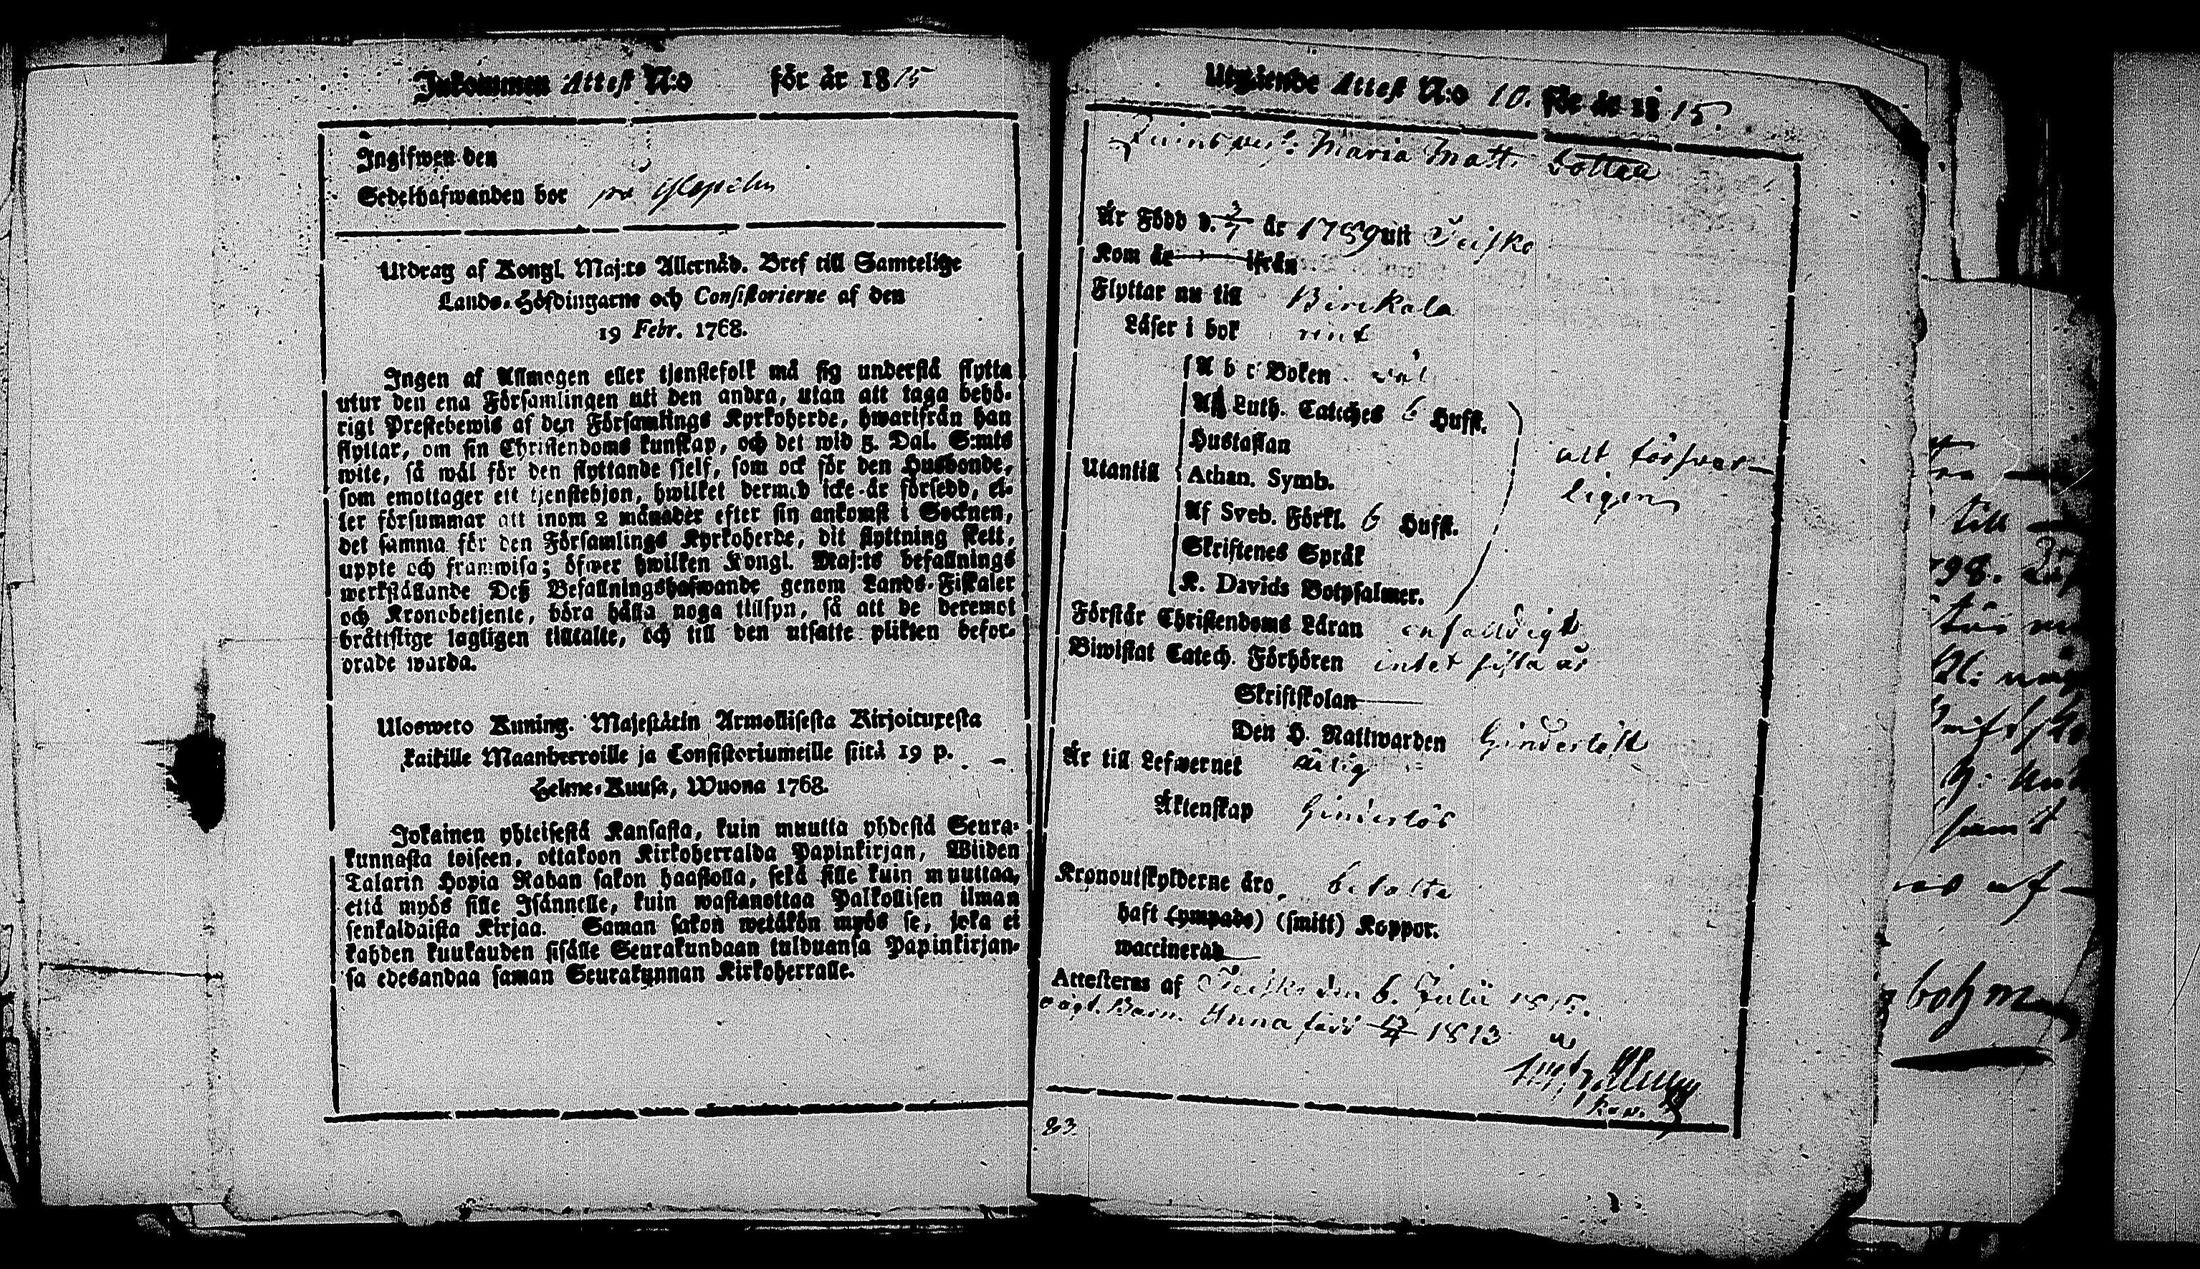 Inkommen Attest N:o för år 1815
Ingifwen den
Sedelhafwanden bor på
Utdrag af Kongl. Maj:ts Allernåd. Bref till Samtelige
Lands-Höfdingarne och Consistorierne af den
19 Febr. 1768.
Ingen af Allmogen eller tjenstefolk må sig understå flytta
utur den ena Församlingen uti den andra, utan att taga behö-
rigt Prestebewis af den Församlings Kyrkoherde, hwarifrån han
flyttar, om sin Christendoms kunskap, och det wid 5. Dal. S:mts
wite, så wäl för den flyttande sielf, som ock för den Husbonde,
som emottager ett tjenstehjon, hwilket dermed icke är försedd, el-
ler försummar att inom 2 månader efter sin ankomst i Socknen,
det samma för den Församlings Kyrkoherde, dit flyttning skett,
uppte och framwisa; öfwer hwilken Kongl. Maj:ts befallnings
werkställande Deß Befallningshafwande genom Lands-Fiskaler
och Kronobetjente, böra hålla noga tillsyn, så att de deremot
bråttslige lagligen tilltalte, och till den utsatte plikten befor-
drade warda.
Ulosweto Kuning. Majestätin Armollisesta Kirjoituxesta
kaikille Maanherroille ja Consistoriumeille siitä 19 p.
Helme-Kuusa, Wuona 1768.
Jokainen yhteisestä Kansasta, kuin muutta yhdestä Seura-
kunnasta toiseen, ottakoon Kirkoherralda Papinkirjan, Wiiden
Talarin Hopia Rahan sakon haastolla, sekä sille kuin muuttaa,
että myös sille Isännelle, kuin wastanottaa Palkollisen ilman
senkaldaista Kirjaa. Saman sakon wetäkön myös se, joka ei
kahden kuukauden sisälle Seurakundaan tulduansa Papinkirjan-
sa edesandaa saman Seurakunnan Kirkoherralle.
Utgående Attest N:o 10. för år 1815.
Maria Matts dotter
Är Född d. 3/7 år 1789 uti Teisko
Kom år ifrån
Flyttar nu till Birkala
Läser i bok rent
A b c Boken väl
Af Luth. Catches 6 Hufst.
Hustaflan
Utantill Athan. Symb. alt försvar-
ligen
Af Sveb. Förkl. 6 Hufst.
Skriftenes Språk
K. Davids Botpsalmer.
Förstår Christendoms Läran enfalldigt
Biwistat Catech. Förhören intet sista år
Skriftskolan
Den H. Nattwarden Hinderlöst
Är till Lefwernet ärlig
Äktenskap Hinderlös
Kronoutskylderne äro betalta
haft (ympade) (smitt) Koppor.
waccinerad
Attesteras af Teisko den 6. Julii 1815.
oägt. Barn. Anna född 1813
83.
till
798.
samt
af